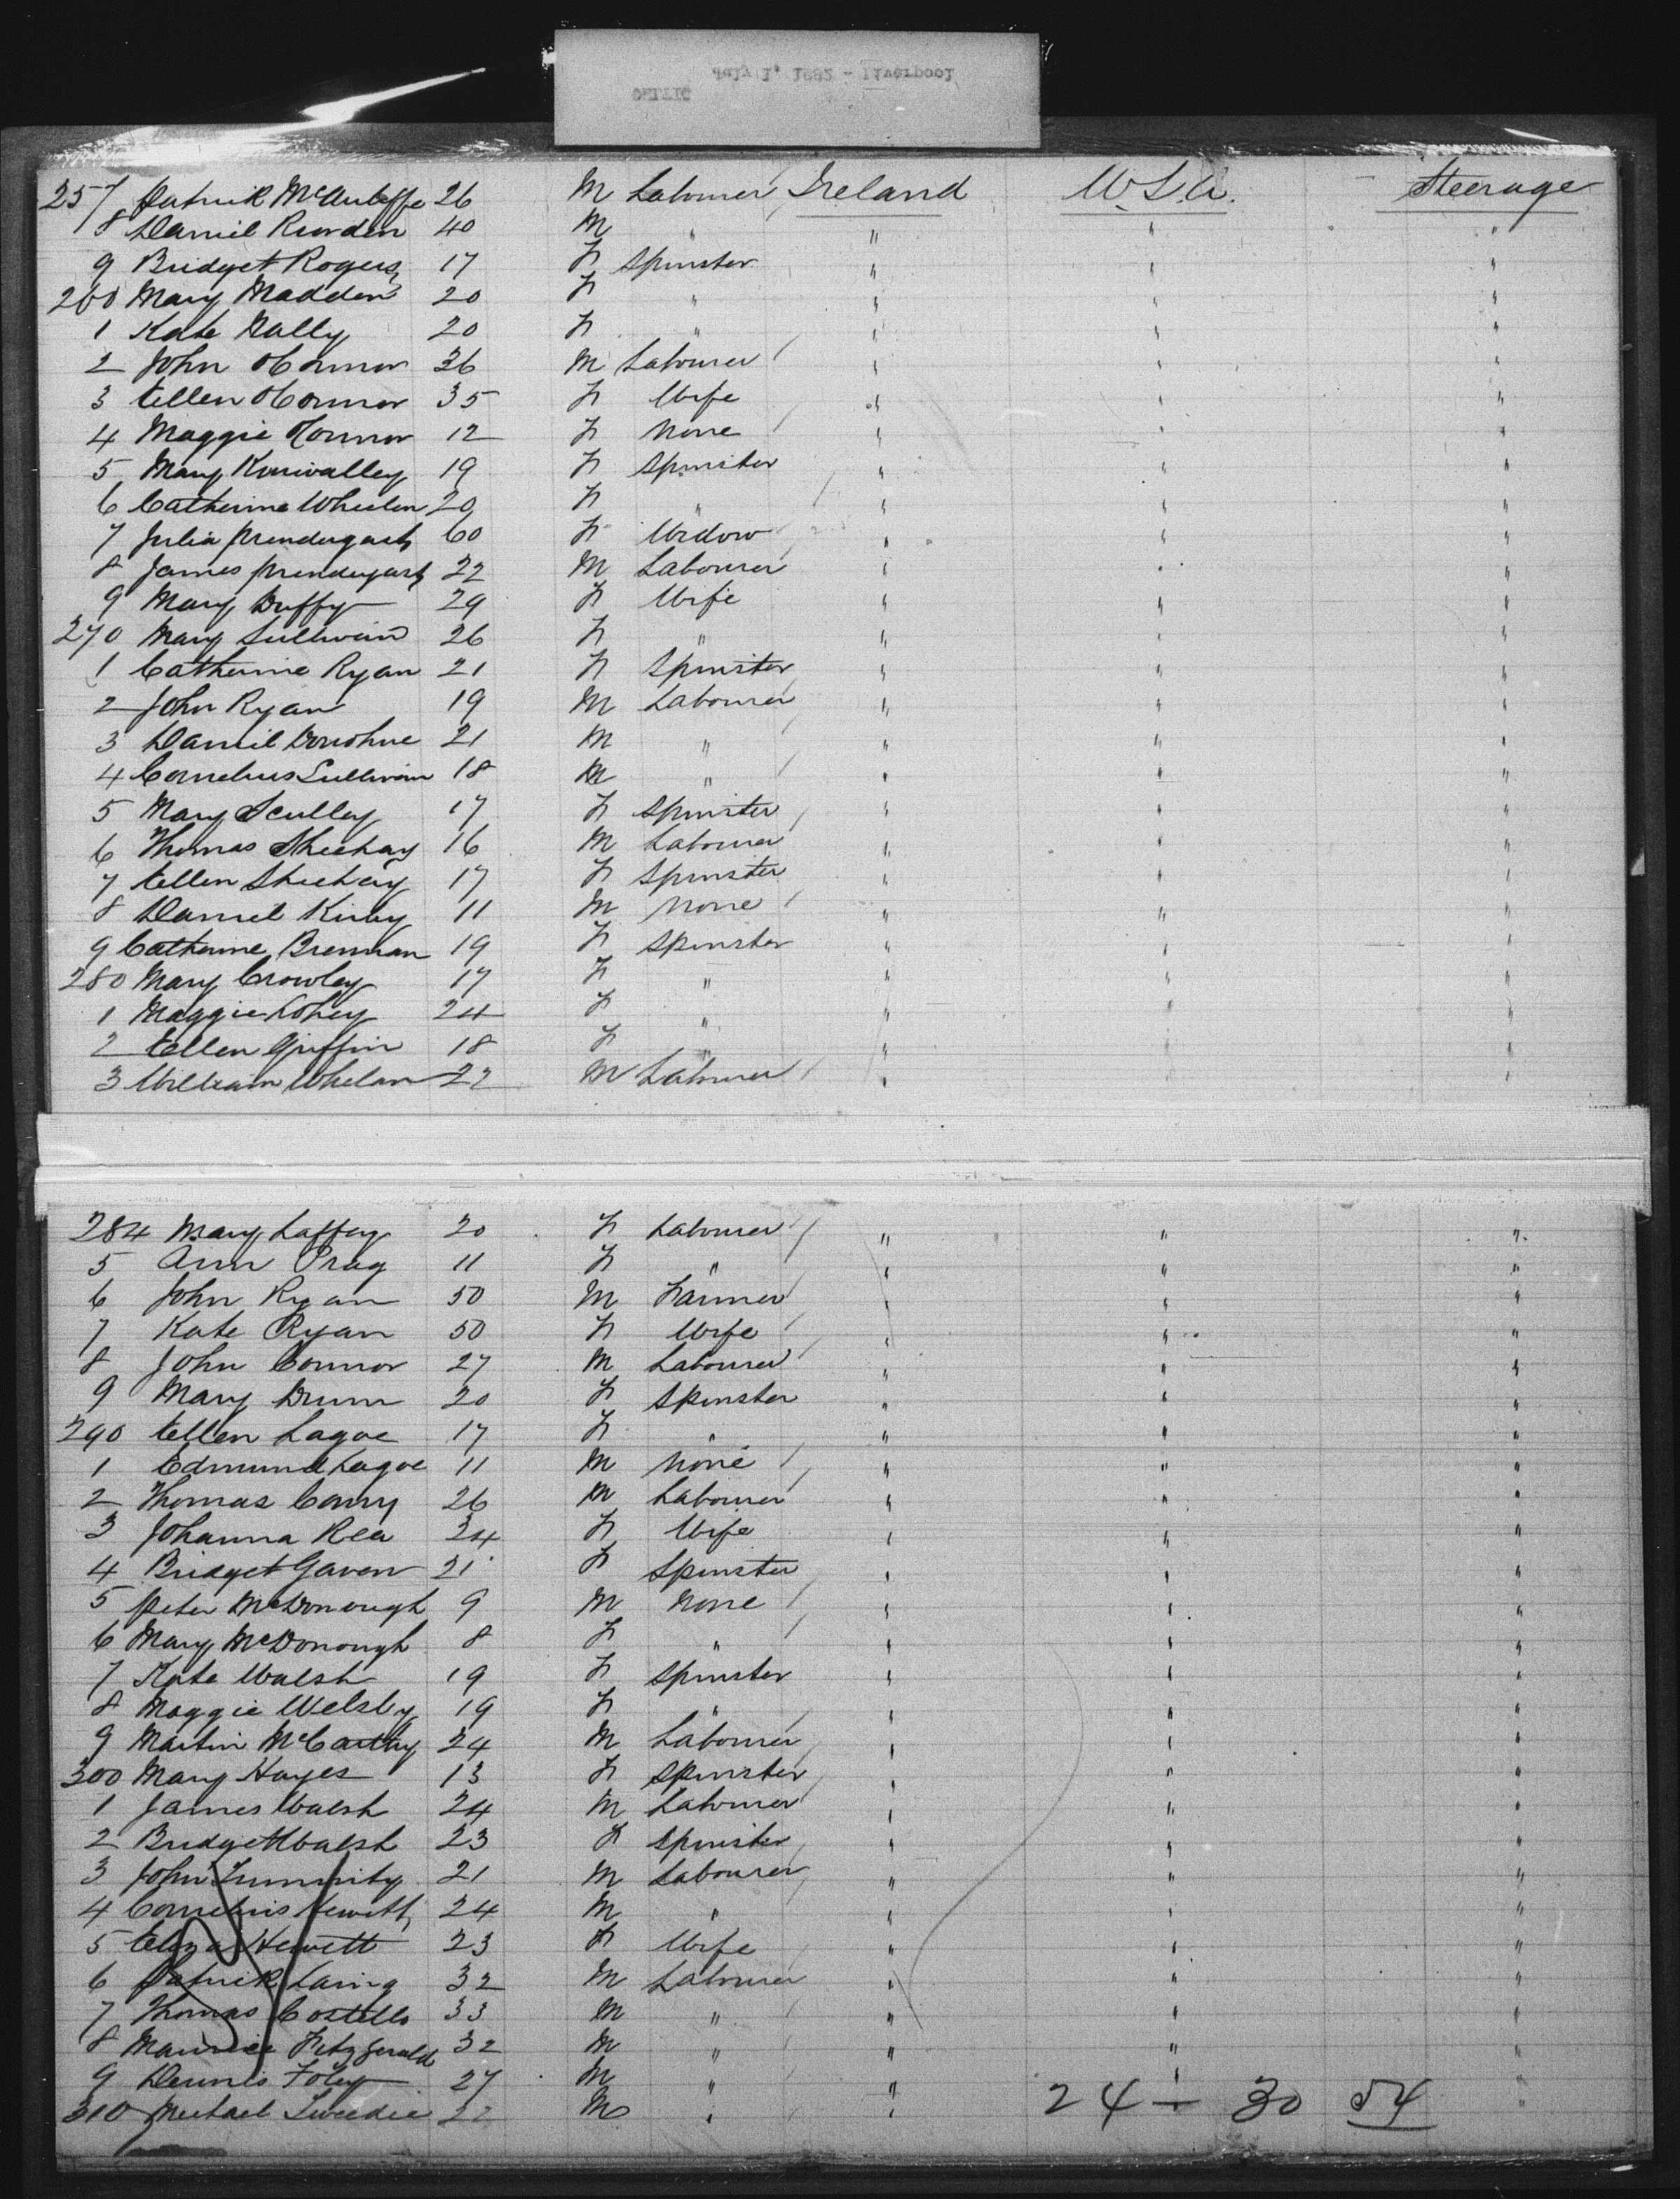 July 1, 1882 - Liverpool
CELTIC
257 Patrick McAuleffe 26 M Labourer Ireland U.S.A. Steerage
8 Daniel Riorden 40 M " " " "
9 Bridget Rogers 17 F Spinster " " "
260 Mary Madden 20 F " " " "
1 Kate Nally 20 F " " " "
2 John OConnor 36 M Labourer " " "
3 Ellen OConnor 35 F Wife " " "
4 Maggie OConnor 12 F None " " "
5 Mary 19 F Spinster " " "
6 Catherine Whelen 20 F " " " "
7 Julia Prendergast 60 F Widow " " "
8 James Prendergast 22 M Labourer " " "
9 Mary Duffy 29 F Wife " " "
270 Mary Sullivan 26 F " " " "
1 Catherine Ryan 21 F Spinster " " "
2 John Ryan 19 M Labourer " " "
3 Daniel Donohue 21 M " " " "
4 Cornelius Sullivan 18 M " " " "
5 Mary Sculley 17 F Spinster " " "
6 Thomas Sheehay 16 M Labourer " " "
7 Ellen Sheehay 17 F Spinster " " "
8 Daniel Kirby 11 M None " " "
9 Catherine Brennan 19 F Spinster " " "
280 Mary Crowley 17 F " " " "
1 Maggie 24 F " " " "
2 Ellen Griffin 18 F " " " "
3 William Whelan 22 M Labourer " " "
284 Mary Laffey 20 F Labourer " " "
5 Ann Pray 11 F " " " "
6 John Ryan 50 M Farmer " " "
7 Kate Ryan 50 F Wife " " "
8 John Connor 27 M Labourer " " "
9 Mary Drum 20 F Spinster " " "
290 Ellen Lagoe 17 F " " " "
1 Edmund Lagoe 11 M None " " "
2 Thomas Conry 26 M Labourer " " "
3 Johanna Rea 24 F Wife " " "
4 Bridget Gaven 21 F Spinster " " "
5 Peter McDonough 9 M None " " "
6 Mary McDonough 8 F " " " "
7 Kate Walsh 19 F Spinster " " "
8 Maggie Welsby 19 F " " " "
9 Martin McCarthy 24 M Labourer " " "
300 Mary Hayes 13 F Spinster " " "
1 James Walsh 24 M Labourer " " "
2 Bridget Walsh 23 F Spinster " " "
3 John 21 M Labourer " " "
4 Cornelius Hewitt 24 M " " " "
5 Eliza Hewett 23 F Wife " " "
6 Patrick Laing 32 M Labourer " " "
7 Thomas Costello 33 M " " " "
8 Maurice Fitzgerald 32 M " " " "
9 Dennis Foley 27 M " " " "
310 Michael Tweedie 22 M " " "
24 - 30 54